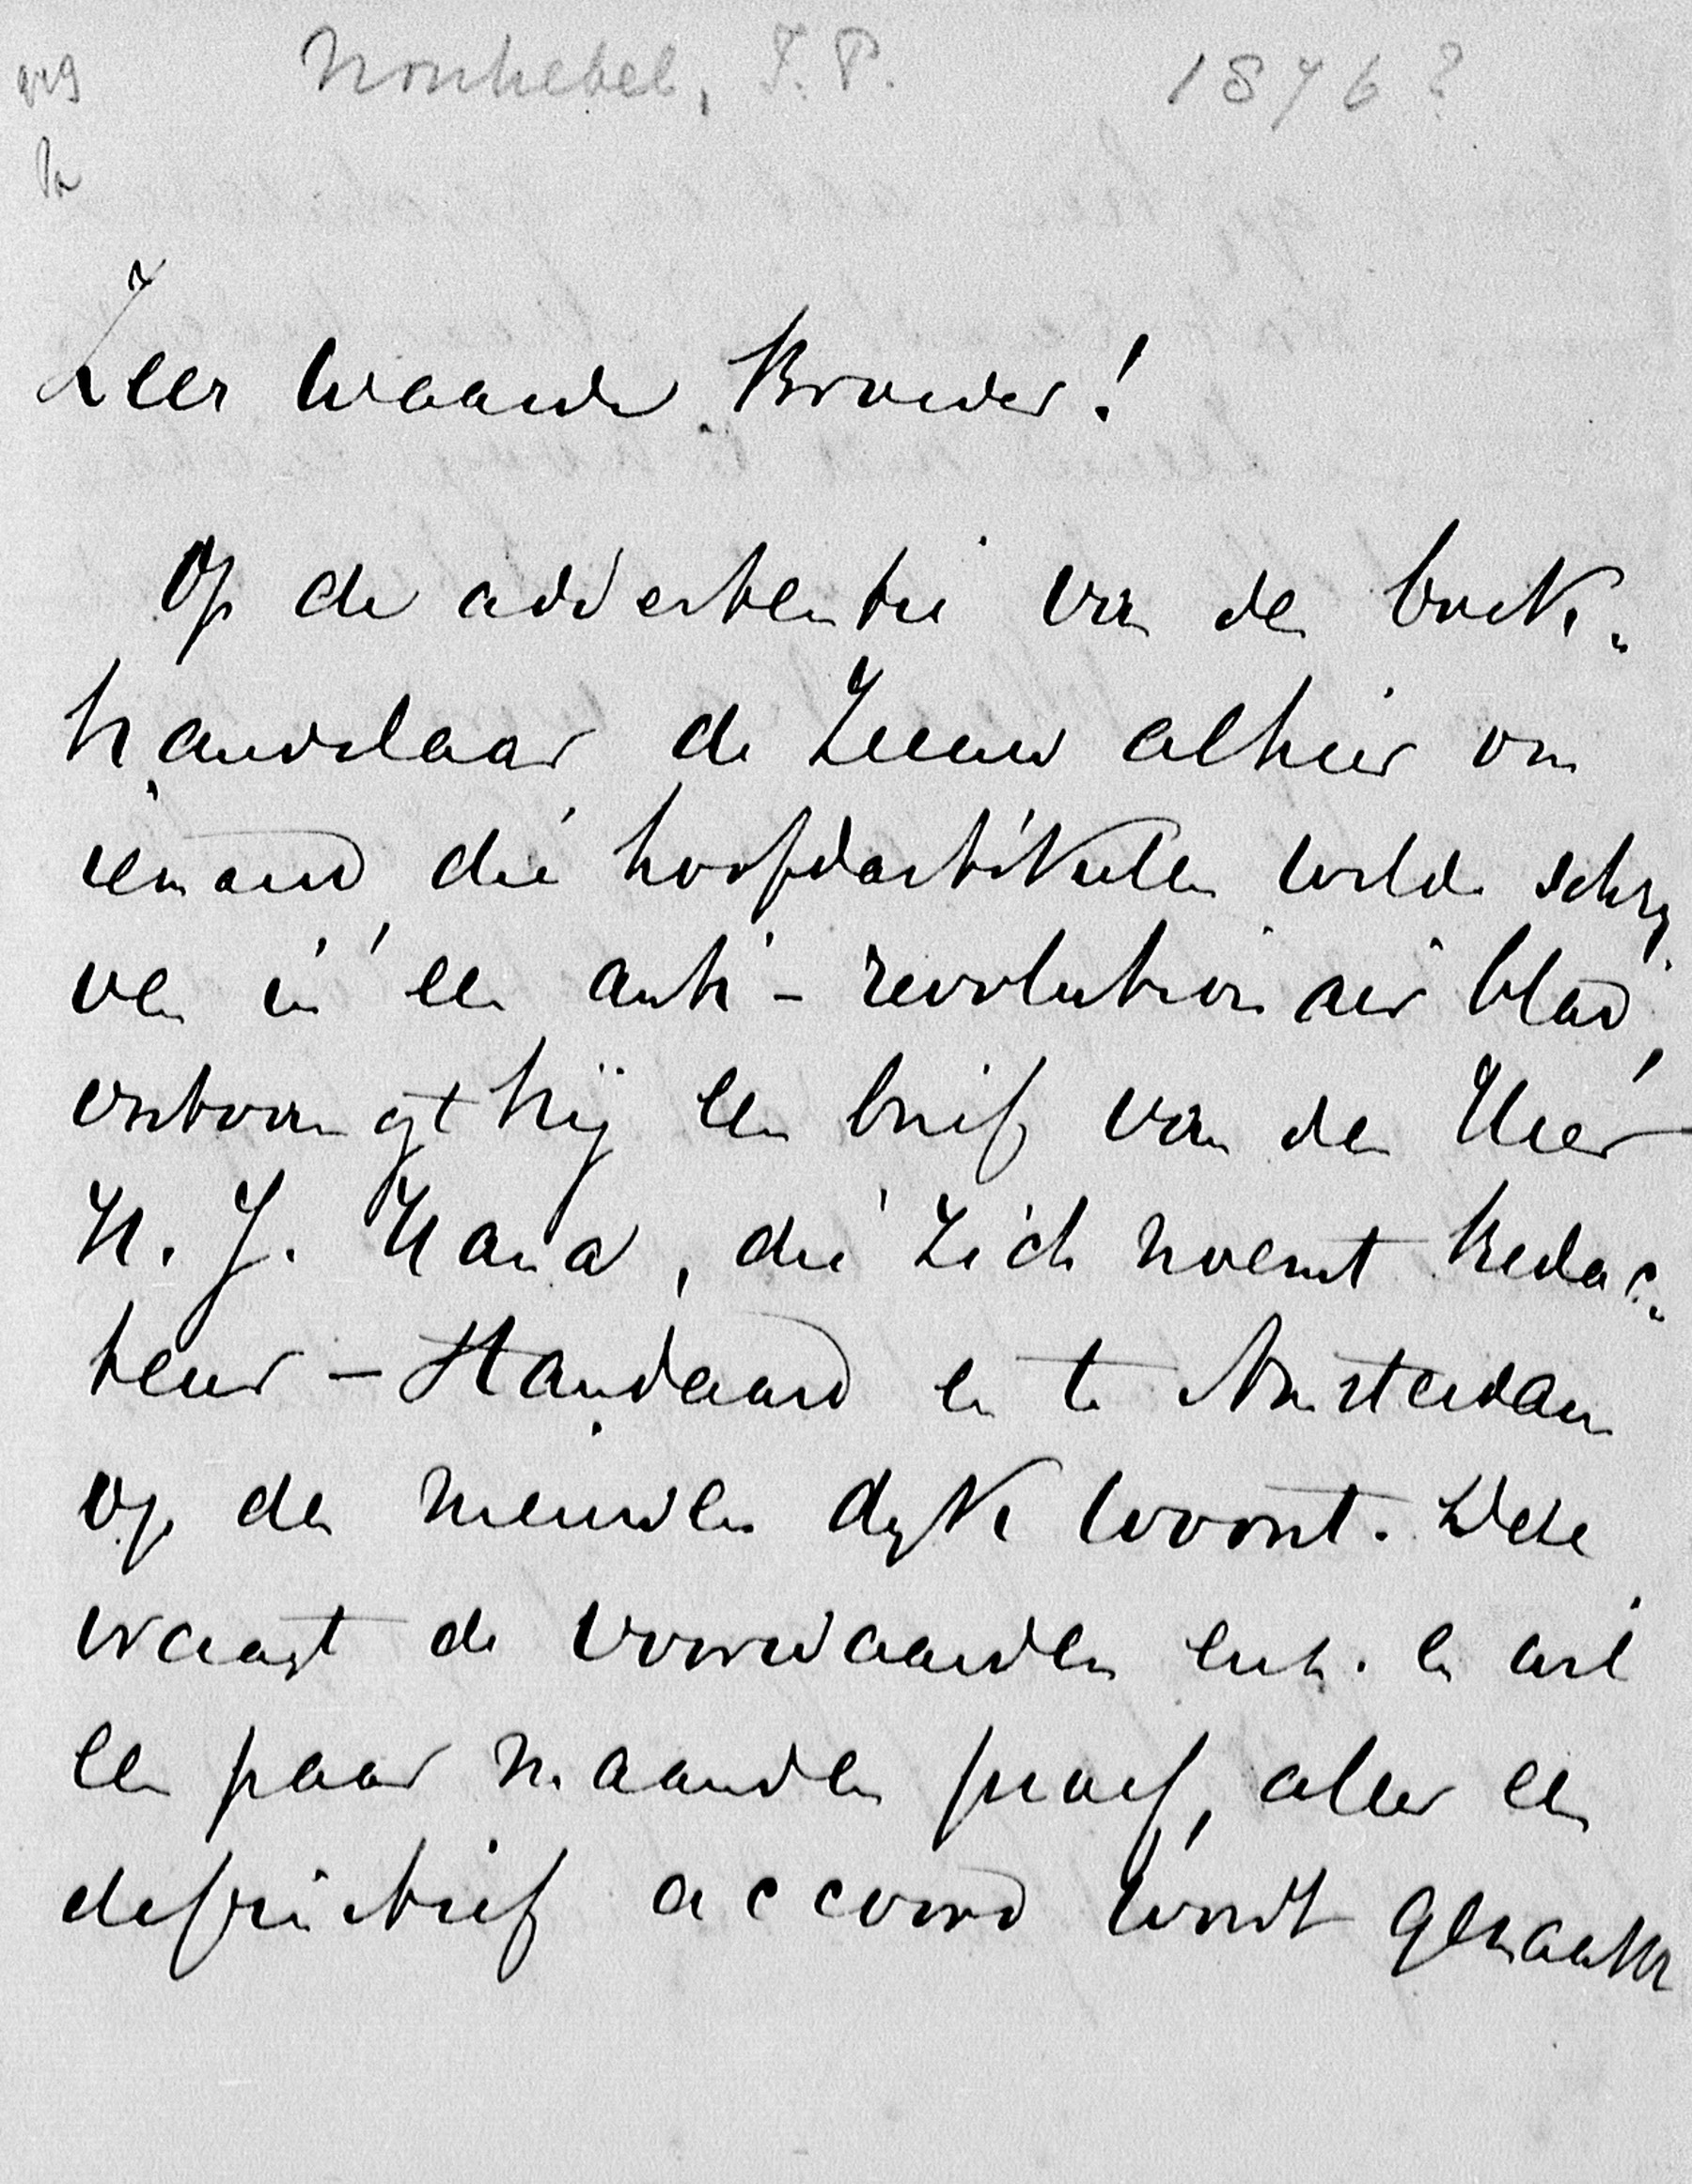 Nonhebel, J. P. 1876?
Zeer Waarde Broeder!
Op de advertentie van den boek„
handelaar de Zeeuw alhier om
iemand, die hoofdartikelen wilde schrij
ven in een anti-revolutionair blad,
ontvangt hij een brief van den Heer
H. J. Hana, die zich noemt Redac„
teur-Standaard en te Amsterdam
op den Nieuwen dijk woont. Deze
vraagt de voorwaarden enz. en wil
een paar maanden proef, aller een
definitief accoord wordt gemaakt